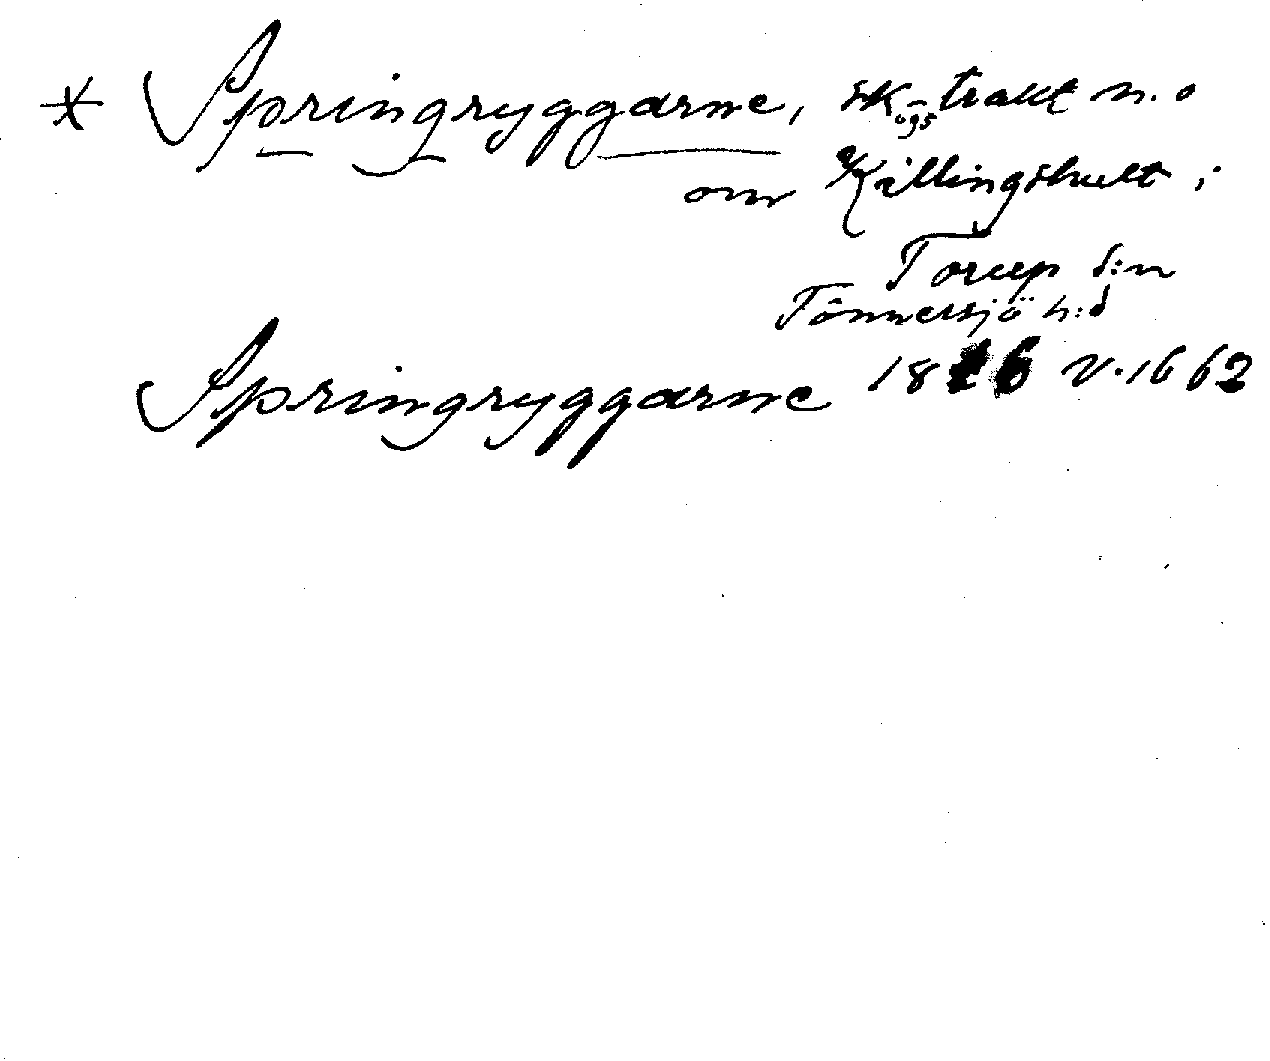 * Springryggarne, skogstrakt n. o
om Killingshult i
Torup s:n
Tönnersjö h:d
Springryggarne 18 6 v. 1662